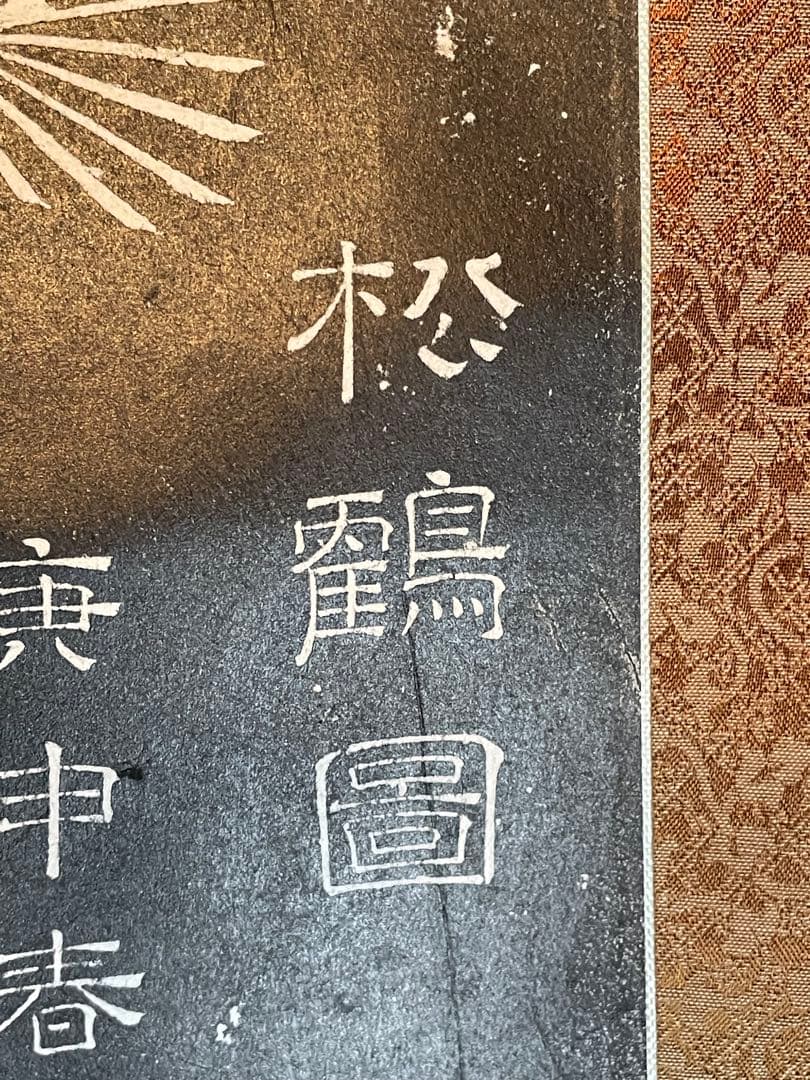 松鶴圖
庚申春